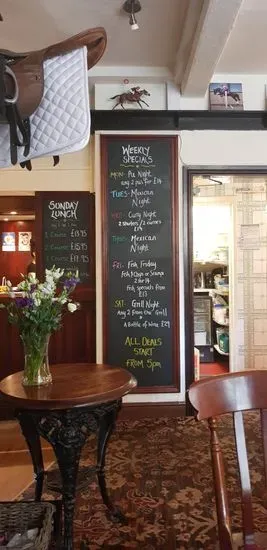 SUNDAY
LUNCH
1 COURSE £13.95
2 COURSE £15.95
3 COURSE £17.95
WEEKLY
SPECIALS
MON- Pie Night
any 2 pies for £14
TUES- Mexican
Night
WED- Curry Night
2 starters/2 curries
£15
THURS- Mexican
Night
FRI- Fish Friday
Fish & Chips or Scampi
2 for 14
Fish specials from
£13
SAT- Grill Night
Any 2 from "our" Grill
+
A Bottle of Wine £29
ALL DEALS
START
FROM 5pm